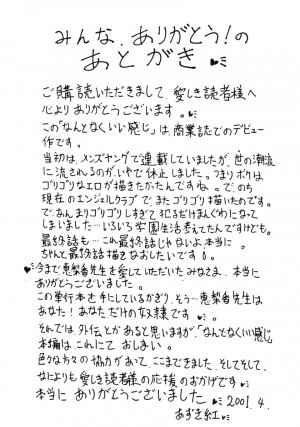 みんな、ありがとう!の
あとがき
ご購読いただきまして、愛しき読者様へ
心よりありがとうございます。
この「なんとなくいい感じ」は、商業誌でのデビュー
作です。
当初は、メンズヤングで連載していましたが、世の潮流
に流されるのがいやで休止しました。つまりボクは
ゴリゴリなエロが描きたかったんですね。で、のち
現在のエンジェルクラブで、またゴリゴリ描いたのです。
で、あんまりゴリゴリしすぎて犯るだけまんがになって
しまいました…いろいろ学園生活考えてたんですけども。
最終話も…これ最終話じゃないよ本当に。
ちゃんと最終話描きなおしたいです。
今まで恵梨香先生を愛していただいたみなさま、本当に
ありがとうございました。
この単行本を手にしているかぎり、そう…恵梨香先生は
あなた!あなただけの奴隷です
それでは、外伝とかあると思いますが、「なんとなくいい感じ
本編はこれにておしまい。
色々な方々の協力があって、ここまできました。そしてそして、
なによりも愛しき読者様の応援のおかげです
本当にありがとうございました 2001.4.
あずき紅